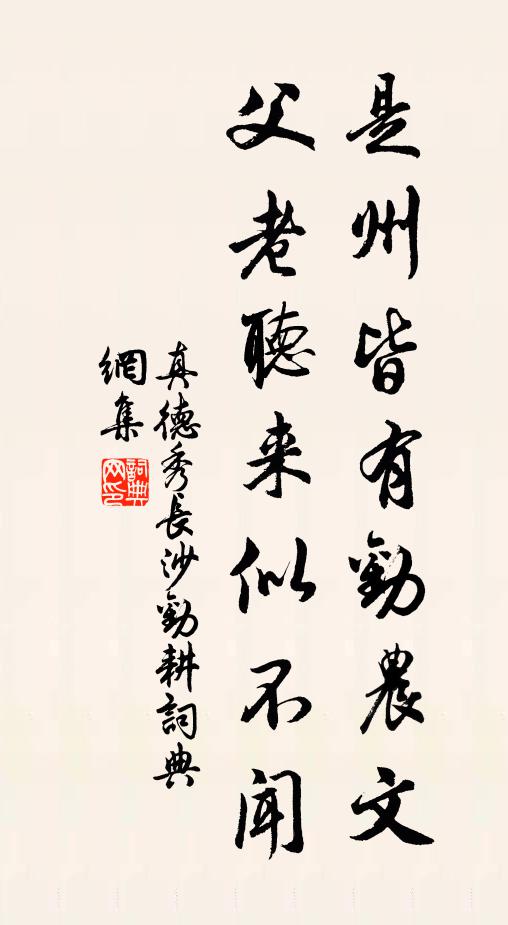 是州皆有勸農文
父老聽来似不聞
真德秀長沙勸耕詞典
網集
詞典
网印